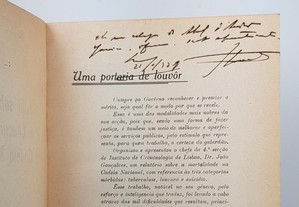 21/3/929
Uma portaria de louvôr
Cumpre ao Govêrno reconhecer e premear o
mérito, seja qual fôr o modo por que se revele.
Essa é uma das modalidades mais nobres da
sua acção, pois que, sendo uma forma de fazer
justiça, é tambem um meio de melhorar e aperfei-
çoar os serviços públicos, pelo estímulo que repre-
senta, para quem trabalha, a certeza do galardão.
Organizou e apresentou o chefe da 4.ª secção
do Instituto de Criminologia de Lisboa, Dr. João
Gonçalves, um relatório sobre a mortalidade na
Cadeia Nacional, com referencia às tres categorias
mórbidas: tuberculose, loucura e suicídio.
Esse trabalho, notável no seu género, pelo
esfôrço e inteligencia que traduz, foi levado a cabo
atravez das mil dificuldades que resultam, princi-